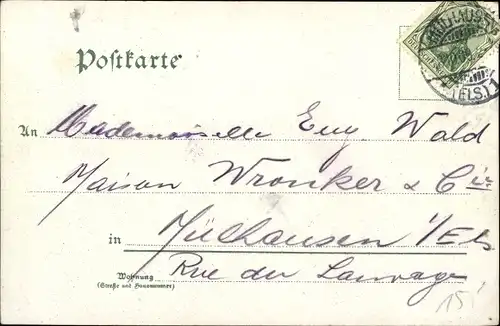 Postkarte
MÜLHAUSEN
(ELS.) 1
An Mademoiselle Eug. Wald
Maison Wronker & Cie
in Mülhausen i/Els
Rue du Sauvage
Wohnung
(Straße und Hausnummer)
15